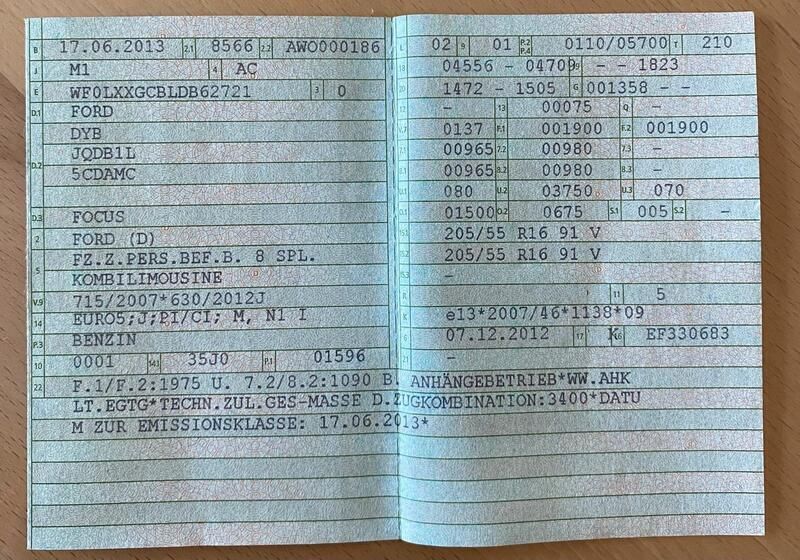 B 17.06.2013 2.1 8566 2.2 AWO000186
J M1 4 AC
E WF0LXXGCBLDB62721 3 0
D.1 FORD
DYB
D.2 JQDB1L
5CDAMC
D.3 FOCUS
2 FORD (D)
FZ.Z.PERS.BEF.B. 8 SPL.
5 KOMBILIMOUSINE
V.9 715/2007*630/2012J
14 EURO5;J;PI/CI; M, N1 I
P.3 BENZIN
10 0001 14.1 35J0 P.1 01596
L 02 9 01 P.2 P.4 0110/05700 T 210
18 04556 - 04709 19 - - 1823
20 1472 - 1505 G 001358 - -
- 13 00075 Q -
V.7 0137 F.1 001900 F.2 001900
7.1 00965 7.2 00980 7.3 -
8.1 00965 8.2 00980 8.3 -
U.1 080 U.2 03750 U.3 070
O.1 01500 O.2 0675 S.1 005 S.2 -
15.1 205/55 R16 91 V
15.2 205/55 R16 91 V
15.3 -
R 11 5
K e13*2007/46*1138*09
6 07.12.2012 17 K 16 EF330683
21 -
22 F.1/F.2:1975 U. 7.2/8.2:1090 B. ANHÄNGEBETRIEB*WW.AHK
LT.EGTG*TECHN.ZUL.GES-MASSE D.ZUGKOMBINATION:3400*DATU
M ZUR EMISSIONSKLASSE: 17.06.2013*